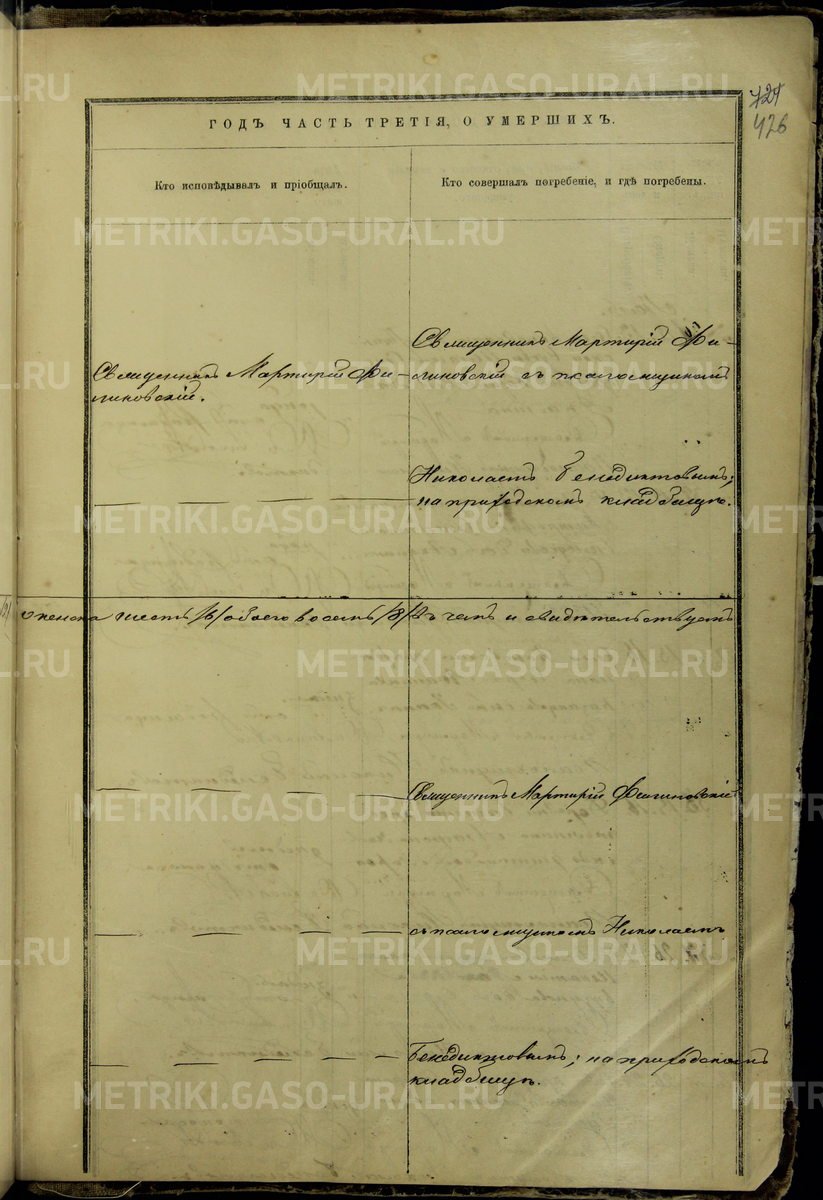 424
426
ГОДЪ ЧАСТЬ ТРЕТІЯ, О УМЕРШИХЪ.
Кто исповѣдывалъ и пріобщалъ.
Кто совершалъ погребеніе, и гдѣ погребены.
Священникъ Мартирій Фи-
линовскій.
Священникъ Мартирій Фи-
линовскій съ псаломщикомъ
Николаемъ Бенедиктовымъ;
на приходскомъ кладбищѣ.
женска шесть /6/ обоего восемь /8/ Въ чемъ и свидѣтельствуемъ
Священникъ Мартирій Филиновскій
съ псаломщикомъ Николаемъ
Бенедиктовымъ; на приходскомъ
кладбищѣ.
METRIKI.GASO-URAL.RU